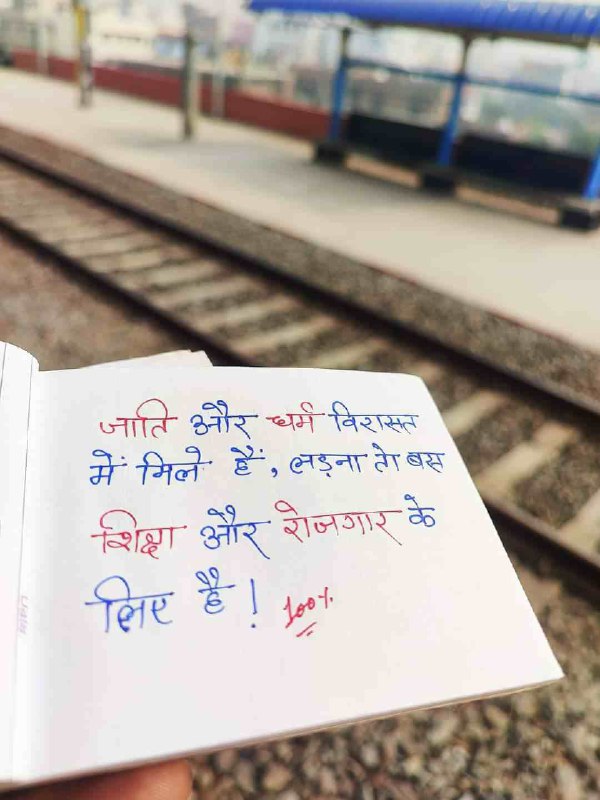 जाति और धर्म विरासत
में मिले हैं, लड़ना तो बस
शिक्षा और रोजगार के
लिए है! 100%